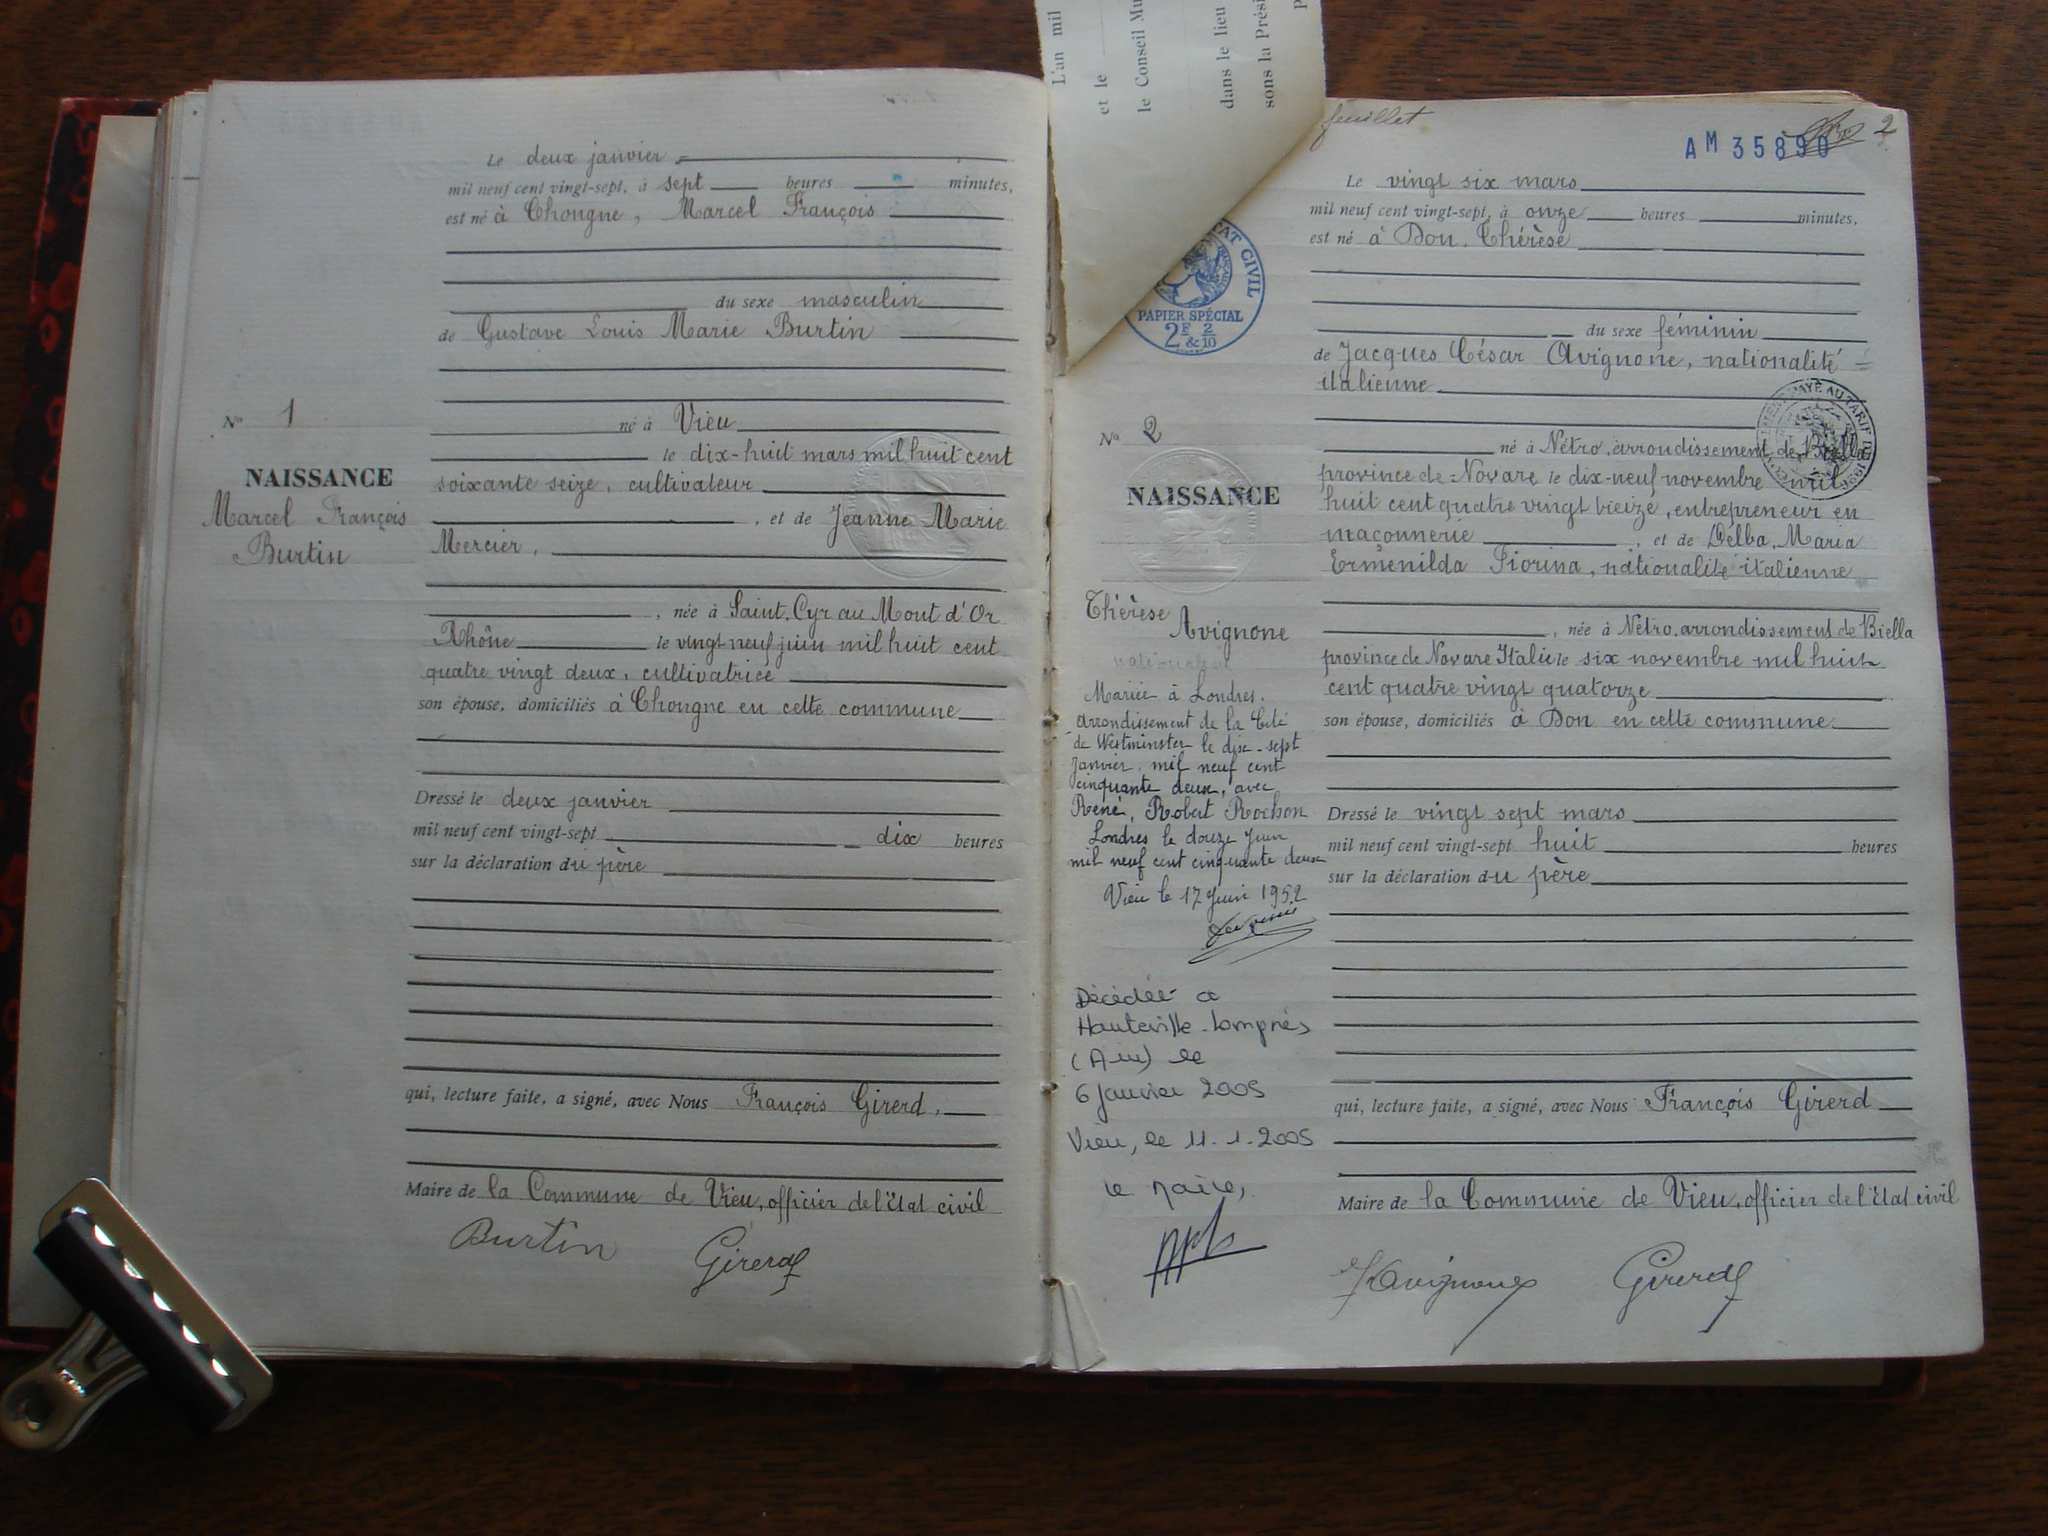 Le deux janvier
mil neuf cent vingt-sept, à sept heures minutes,
est né à Chongne, Marcel François
du sexe masculin
de Gustave Louis Marie Burtin
né à Vieu
le dix-huit mars mil huit cent
soixante seize, cultivateur
, et de Jeanne Marie
Mercier,
, née à Saint.Cyr au Mont d'Or
Rhône le vingt neuf juin mil huit cent
quatre vingt deux, cultivatrice
son épouse, domiciliés à Chongne en cette commune
Dressé le deux janvier
mil neuf cent vingt-sept dix heures
sur la déclaration du père
qui, lecture faite, a signé, avec Nous François Girerd,
Maire de la Commune de Vieu, officier de l'État civil
Burtin Girerd
No 1
NAISSANCE
Marcel François
Burtin
L'an mil
et le
le Conseil Mu
dans le lieu
sous la Prési
feuillet
2
AM 35890
ÉTAT CIVIL
PAPIER SPÉCIAL
2F & 2/10
No 2
NAISSANCE
Thérèse
Avignone
Mariée à Londres.
arrondissement de la Cité
de Westminster le dix-sept
Janvier. mil neuf cent
cinquante deux, avec
René, Robert Rochon
Londres le douze Juin
mil neuf cent cinquante deux
Vieu le 17 Juin 1952
Décédée a
Hauteville-Lompnès
(Ain) le
6 Janvier 2005
Vieu, le 11.1.2005
Le Maire,
Le vingt six mars
mil neuf cent vingt-sept, à onze heures minutes,
est né à Don. Thérèse
du sexe féminin
de Jacques César Avignone, nationalité
italienne
né à Nétro, arrondissement de Biella
province de Novare le dix-neuf novembre mil
huit cent quatre vingt treize, entrepreneur en
maçonnerie , et de Delba, Maria
Ermenilda Fiorina, nationalité italienne
, née à Nétro, arrondissement de Biella
province de Novare Italie le six novembre mil huit
cent quatre vingt quatorze
son épouse, domiciliés à Don en cette commune.
Dressé le vingt sept mars
mil neuf cent vingt-sept huit heures
sur la déclaration du père
qui, lecture faite, a signé, avec Nous François Girerd
Maire de la Commune de Vieu, officier de l'État civil
Avignone Girerd